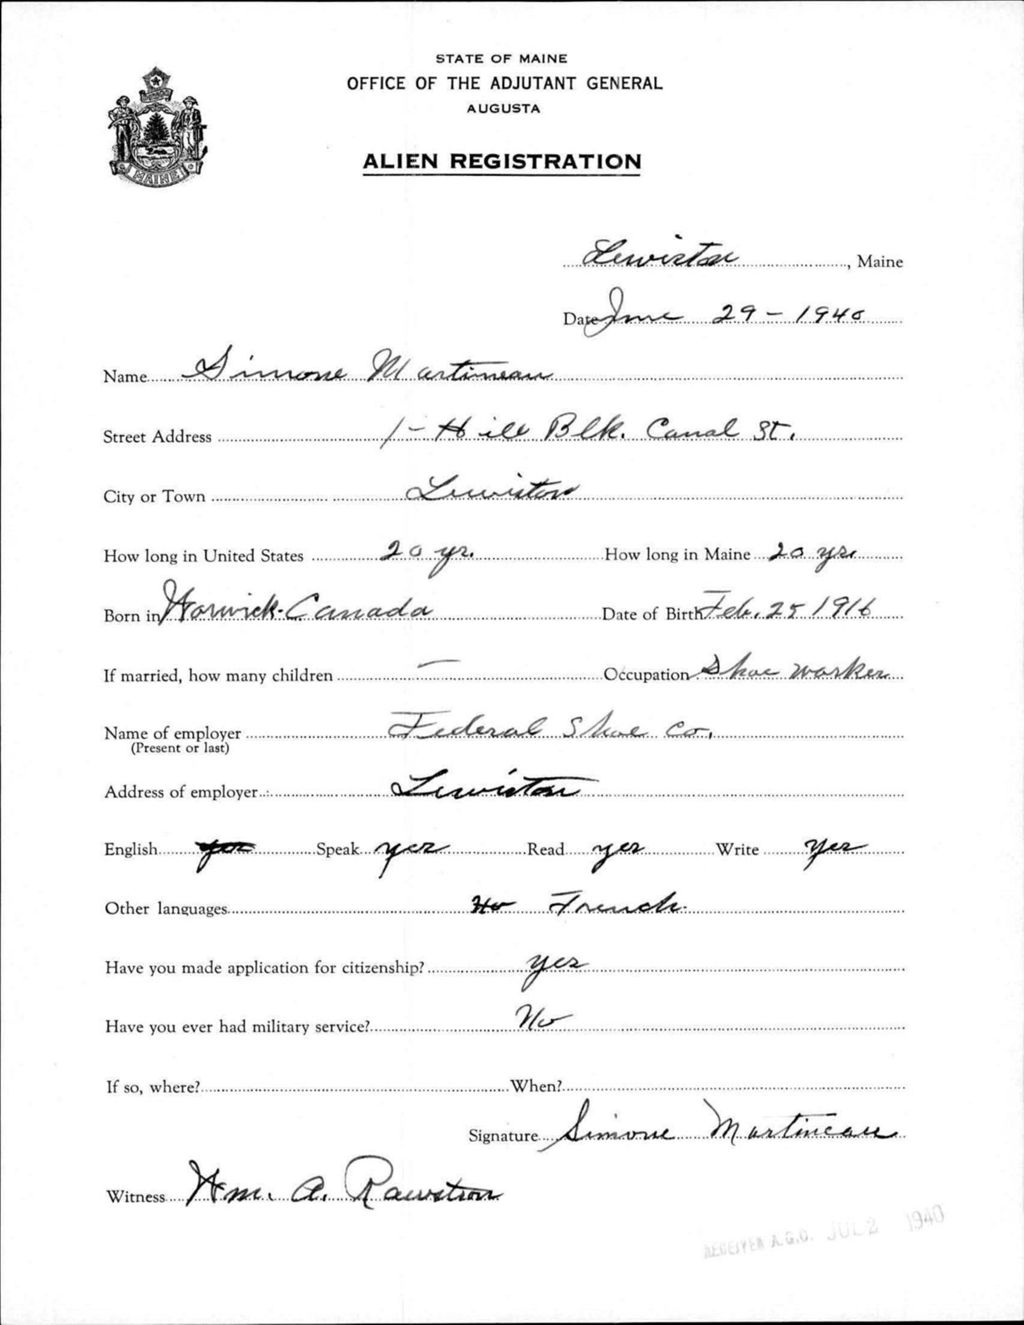 STATE OF MAINE
OFFICE OF THE ADJUTANT GENERAL
AUGUSTA
ALIEN REGISTRATION
MAINE
Lewiston, Maine
Date June 29 - 1940
Name Simone Martineau
Street Address 1 - Hill Blk. Canal St.
City or Town Lewiston
How long in United States 20 yr. How long in Maine 20 yr.
Born in Warwick - Canada Date of Birth Feb. 25 1916
If married, how many children — Occupation Shoe worker
Name of employer Federal Shoe Co.
(Present or last)
Address of employer Lewiston
English yes Speak yes Read yes Write yes
Other languages No French
Have you made application for citizenship? yes
Have you ever had military service? No
If so, where? When?
Signature Simone Martineau
Witness Wm. A. Rawstron
RECEIVED A.G.O. JUL 2 1940